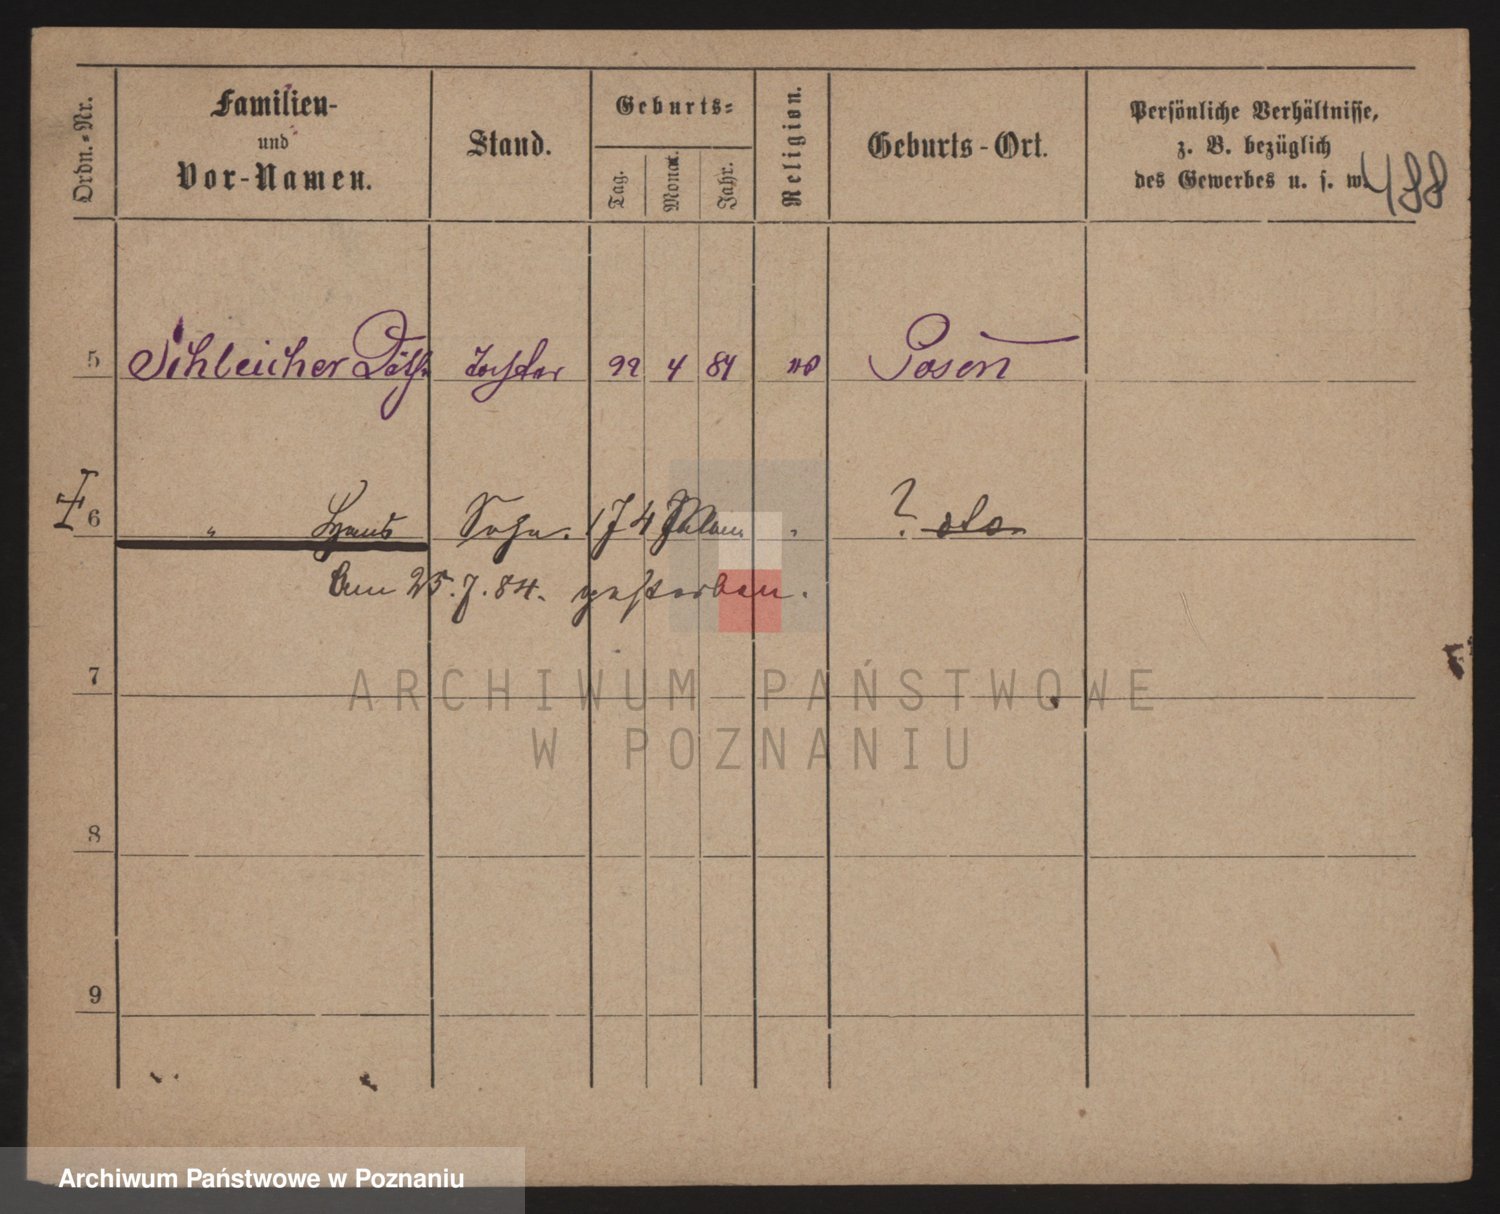 Ordn.-Nr.
Familien-
und
Vor-Namen.
Stand.
Geburts-
Tag.
Monat.
Jahr.
Religion.
Geburts-Ort.
Persönliche Verhältnisse,
z. B. bezüglich
des Gewerbes u. s. w.
488
5 Schleicher Tochter 22 4 84 Posen
6 " Hans Sohn. " ?
Am 25.7.84. gestorben.
7
8
9
ARCHIWUM PAŃSTWOWE
W POZNANIU
Archiwum Państwowe w Poznaniu